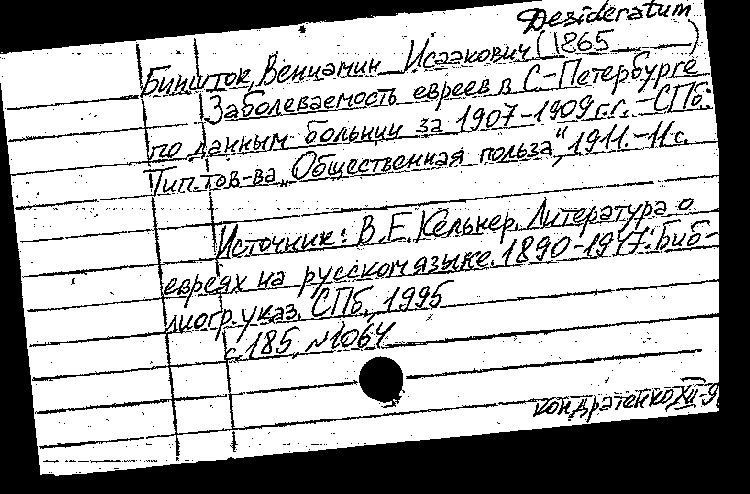 Desideratum
Биншток, Вениамин Исаакович (1865 )
Заболеваемость евреев в С.-Петербурге
по данным больниц за 1907-1909 г.г. - СПб:
Тип. тов-ва „Общественная польза", 1911. - 11 с.
Источник: В.Е. Кельнер. Литература о
евреях на русском языке. 1890-1947: Биб-
лиогр. указ. СПб., 1995
с. 185, №1064
Кондратенко XII-9